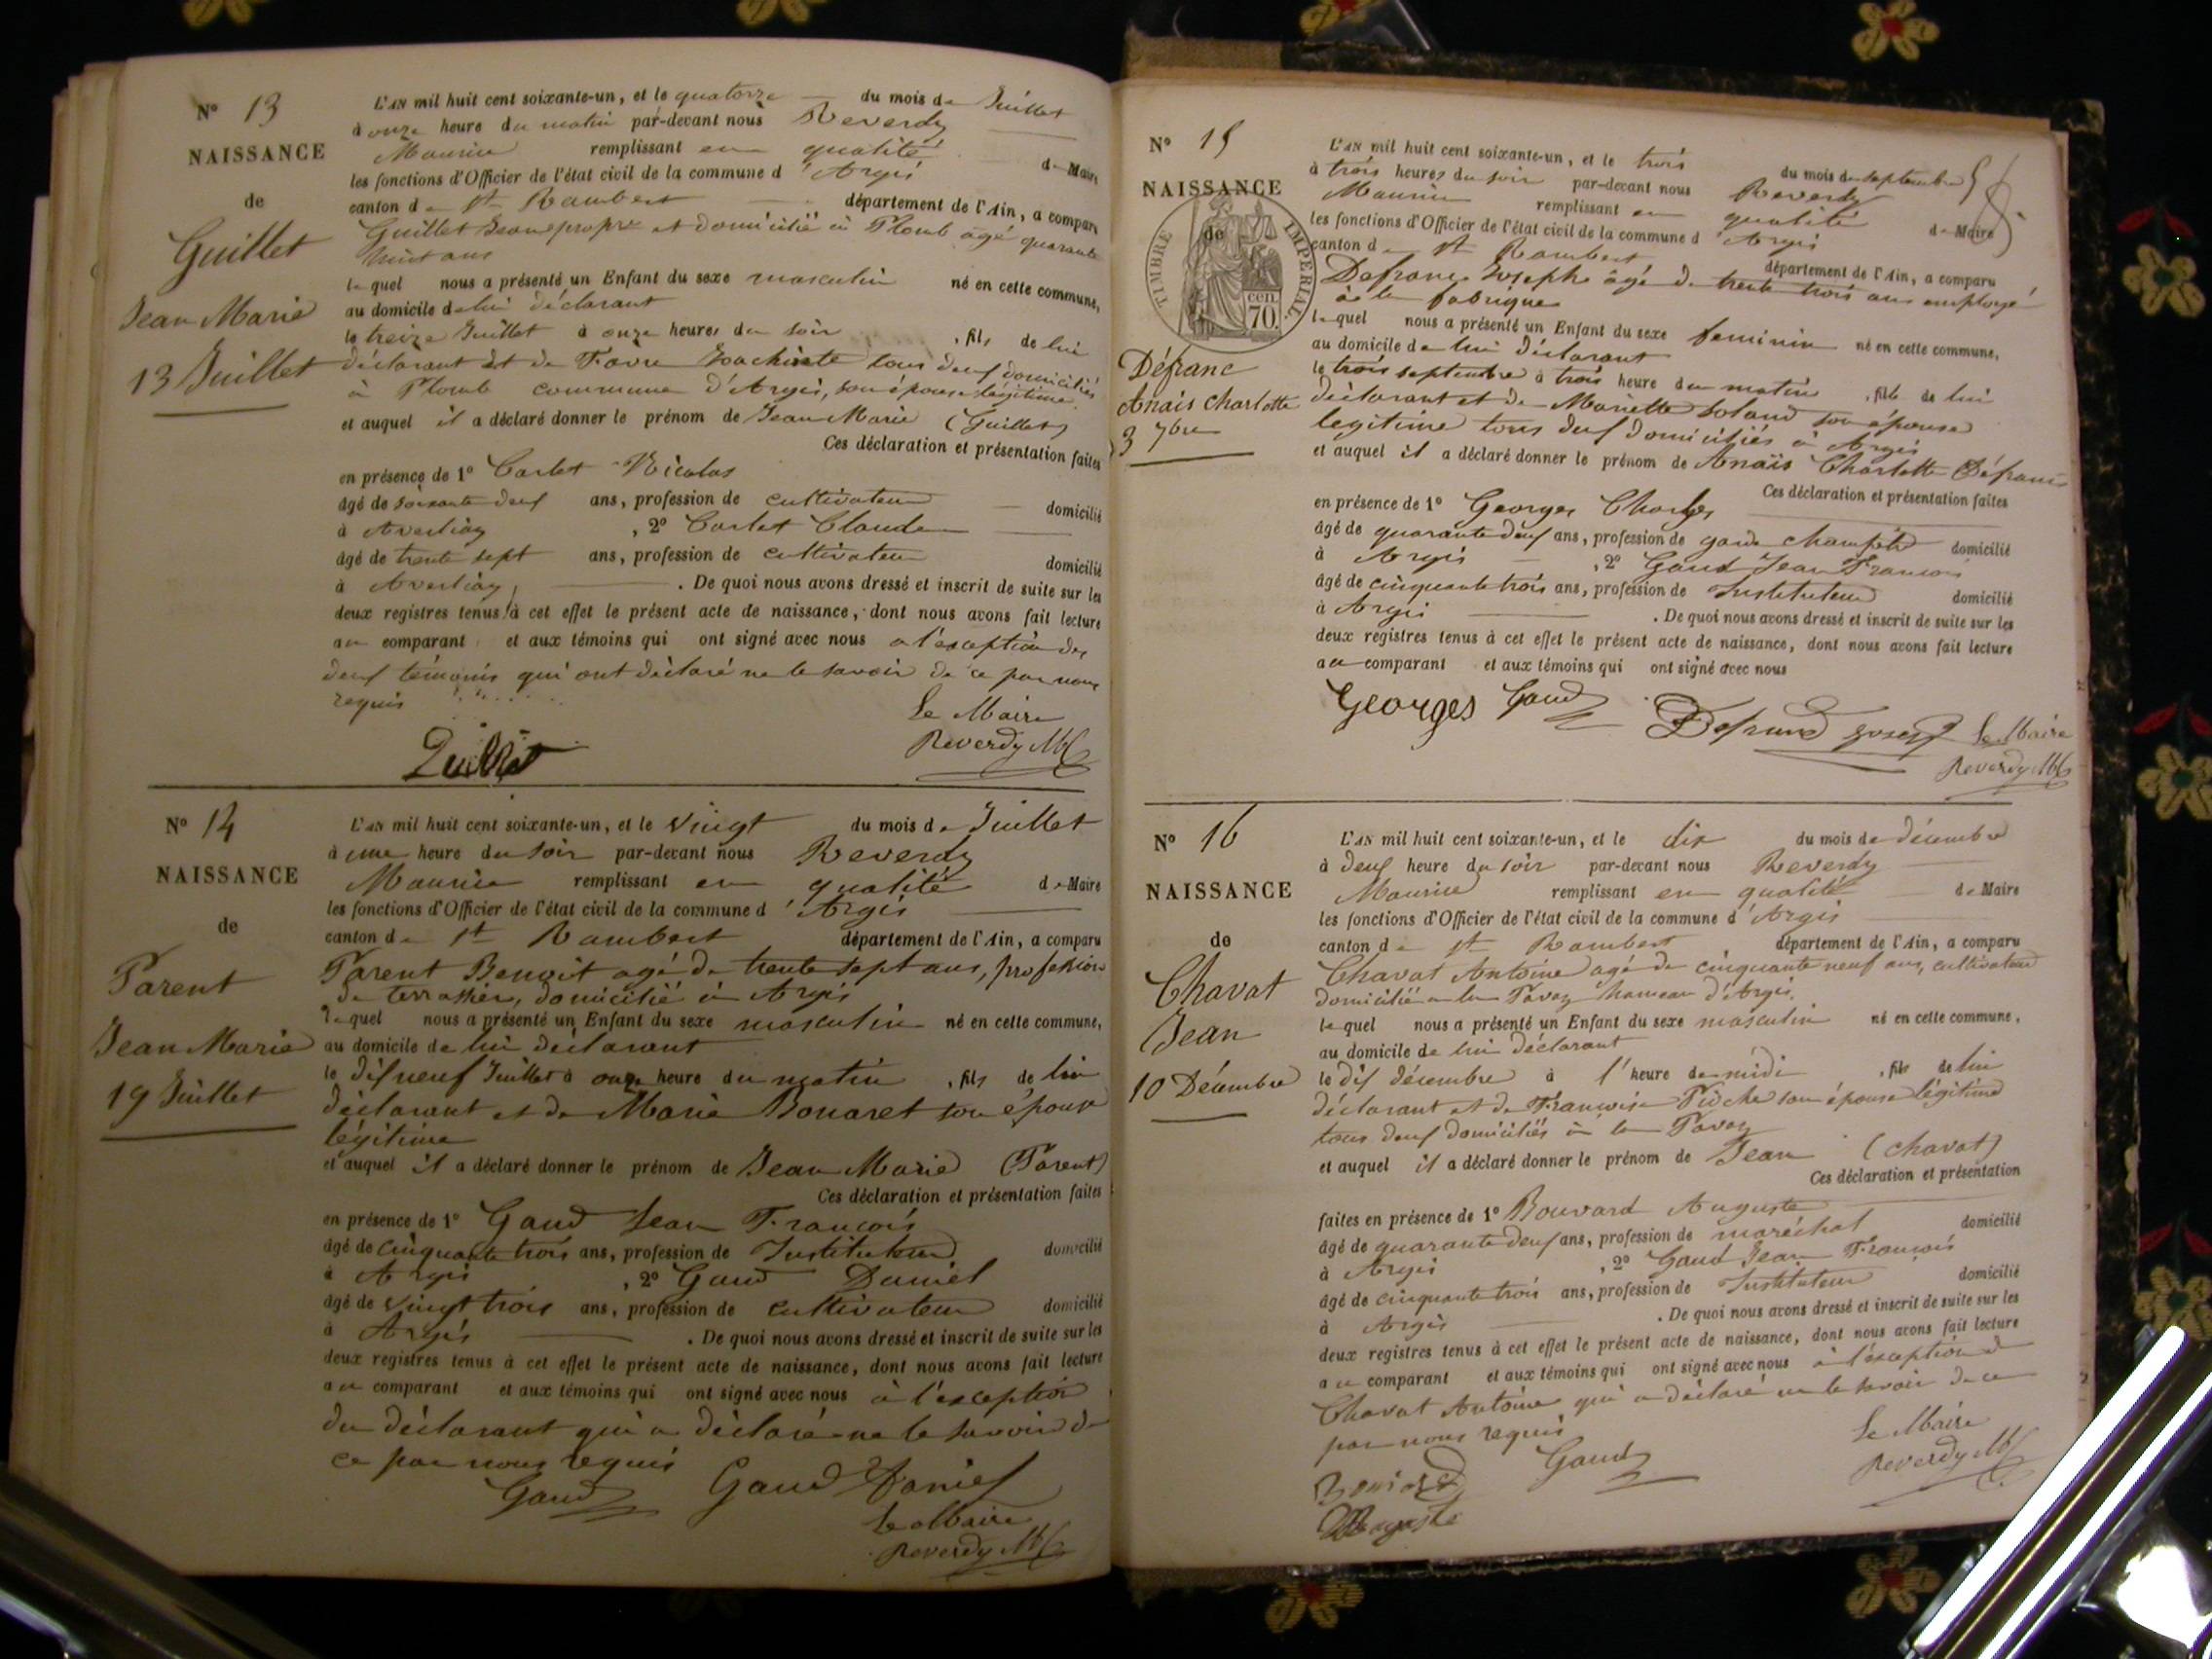 N° 13
NAISSANCE
de
Guillet
Jean Marie
13 Juillet
L'AN mil huit cent soixante-un, et le quatorze du mois de Juillet
à onze heure du matin par-devant nous Reverdy
Maurice remplissant en qualité de Maire
les fonctions d'Officier de l'état civil de la commune d'Argis
canton de St Rambert département de l'Ain, a comparu
Guillet et domicilié à Plomb agé quarante
huit ans
lequel nous a présenté un Enfant du sexe masculin né en cette commune,
au domicile de lui déclarant
le treize Juillet à onze heures du soir , fils de lui
déclarant et de Favre tous deux domiciliés
à Plomb commune d'Argis, son épouse légitime
et auquel il a déclaré donner le prénom de Jean Marie (Guillet)
Ces déclaration et présentation faites
en présence de 1° Carlet Nicolas
âgé de soixante deux ans, profession de cultivateur domicilié
à , 2° Carlet Claude
âgé de trente sept ans, profession de cultivateur domicilié
à . De quoi nous avons dressé et inscrit de suite sur les
deux registres tenus à cet effet le présent acte de naissance, dont nous avons fait lecture
au comparant et aux témoins qui ont signé avec nous a l'exception des
deux témoins qui ont déclaré ne le savoir de ce par nous
requis
Le Maire
Reverdy
Guillet
N° 14
NAISSANCE
de
Parent
Jean Marie
19 Juillet
L'AN mil huit cent soixante-un, et le vingt du mois de Juillet
à une heure du soir par-devant nous Reverdy
Maurice remplissant en qualité de Maire
les fonctions d'Officier de l'état civil de la commune d'Argis
canton de St Rambert département de l'Ain, a comparu
Parent Benoit agé de trente sept ans, profession
de terrassier, domicilié à Argis
lequel nous a présenté un Enfant du sexe masculin né en cette commune,
au domicile de lui déclarant
le dix neuf Juillet à onze heure du matin , fils de lui
déclarant et de Marie Bonaret son épouse
légitime
et auquel il a déclaré donner le prénom de Jean Marie (Parent)
Ces déclaration et présentation faites
en présence de 1° Gaud Jean François
âgé de cinquante trois ans, profession de Instituteur domicilié
à Argis , 2° Gaud Daniel
âgé de vingt trois ans, profession de cultivateur domicilié
à Argis . De quoi nous avons dressé et inscrit de suite sur les
deux registres tenus à cet effet le présent acte de naissance, dont nous avons fait lecture
au comparant et aux témoins qui ont signé avec nous à l'exception
du déclarant qui a déclaré ne le savoir de
ce par nous requis
Gaud Gaud Daniel
Le Maire
Reverdy
N° 15
NAISSANCE
de
TIMBRE IMPERIAL
70 cen.
Défranc
Anais Charlotte
3 7bre
L'AN mil huit cent soixante-un, et le trois du mois de septembre
à trois heures du soir par-devant nous Reverdy
Maurice remplissant en qualité de Maire
les fonctions d'Officier de l'état civil de la commune d'Argis
canton de St Rambert département de l'Ain, a comparu
Defranc Joseph âgé de trente trois ans employé
à la fabrique
lequel nous a présenté un Enfant du sexe feminin né en cette commune,
au domicile de lui déclarant
le trois septembre à trois heure du matin , fille de lui
déclarant et de Mariette son épouse
legitime tous deux domiciliés à Argis
et auquel il a déclaré donner le prénom de Anaïs Charlotte Défranc
Ces déclaration et présentation faites
en présence de 1° Georges Charles
âgé de quarante deux ans, profession de garde champêtre domicilié
à Argis , 2° Gaud Jean François
âgé de cinquante trois ans, profession de Instituteur domicilié
à Argis . De quoi nous avons dressé et inscrit de suite sur les
deux registres tenus à cet effet le présent acte de naissance, dont nous avons fait lecture
au comparant et aux témoins qui ont signé avec nous
Georges Gaud Le Maire
Reverdy
N° 16
NAISSANCE
de
Chavat
Jean
10 Décembre
L'AN mil huit cent soixante-un, et le dix du mois de décembre
à deux heure du soir par-devant nous Reverdy
Maurice remplissant en qualité de Maire
les fonctions d'Officier de l'état civil de la commune d'Argis
canton de St Rambert département de l'Ain, a comparu
Chavat Antoine agé de cinquante neuf ans, cultivateur
domicilié à la Pavaz hameau d'Argis,
lequel nous a présenté un Enfant du sexe masculin né en cette commune,
au domicile de lui déclarant
le dix décembre à l'heure de midi , fils de lui
déclarant et de Françoise son épouse légitime
tous deux domiciliés à la Pavaz
et auquel il a déclaré donner le prénom de Jean (chavat)
Ces déclaration et présentation
faites en présence de 1° Bouvard Auguste
âgé de quarante deux ans, profession de maréchal domicilié
à Argis , 2° Gaud Jean François
âgé de cinquante trois ans, profession de Instituteur domicilié
à Argis . De quoi nous avons dressé et inscrit de suite sur les
deux registres tenus à cet effet le présent acte de naissance, dont nous avons fait lecture
au comparant et aux témoins qui ont signé avec nous à l'exception de
Chavat Antoine qui a déclaré ne le savoir de ce
par nous requis
Le Maire
Gaud Reverdy